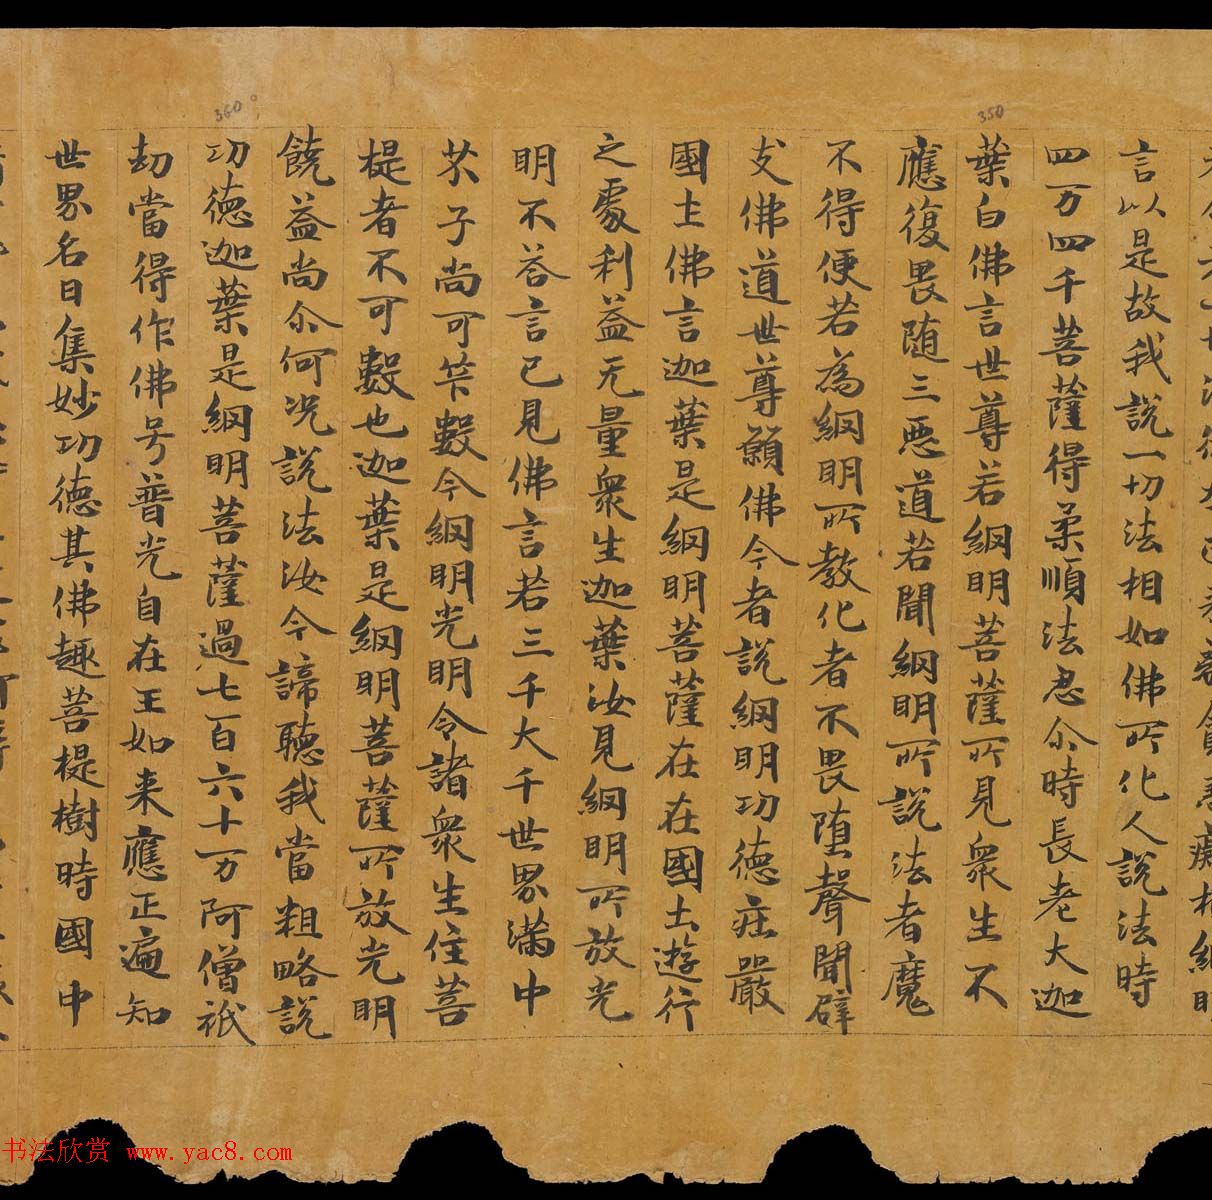 360
350
言以是故我說一切法相如佛所化人說法時
四万四千菩薩得柔順法忍尒時長老大迦
葉白佛言世尊若網明菩薩所見衆生不
應復畏随三惡道若聞網明所說法者魔
不得便若為網明所教化者不畏堕聲聞辟
支佛道世尊願佛今者說網明功德莊嚴
國土佛言迦葉是網明菩薩在在國土遊行
之處利益无量衆生迦葉汝見網明所放光
明不荅言已見佛言若三千大千世界滿中
芥子尚可笇數今網明光明令諸衆生住菩
提者不可數也迦葉是網明菩薩所放光明
饒益尚尒何况說法汝今諦聽我當粗略說
功德迦葉是網明菩薩過七百六十万阿僧祇
劫當得作佛号普光自在王如来應正遍知
世界名曰集妙功德其佛趣菩提樹時國中
书法欣赏 www.yac8.com